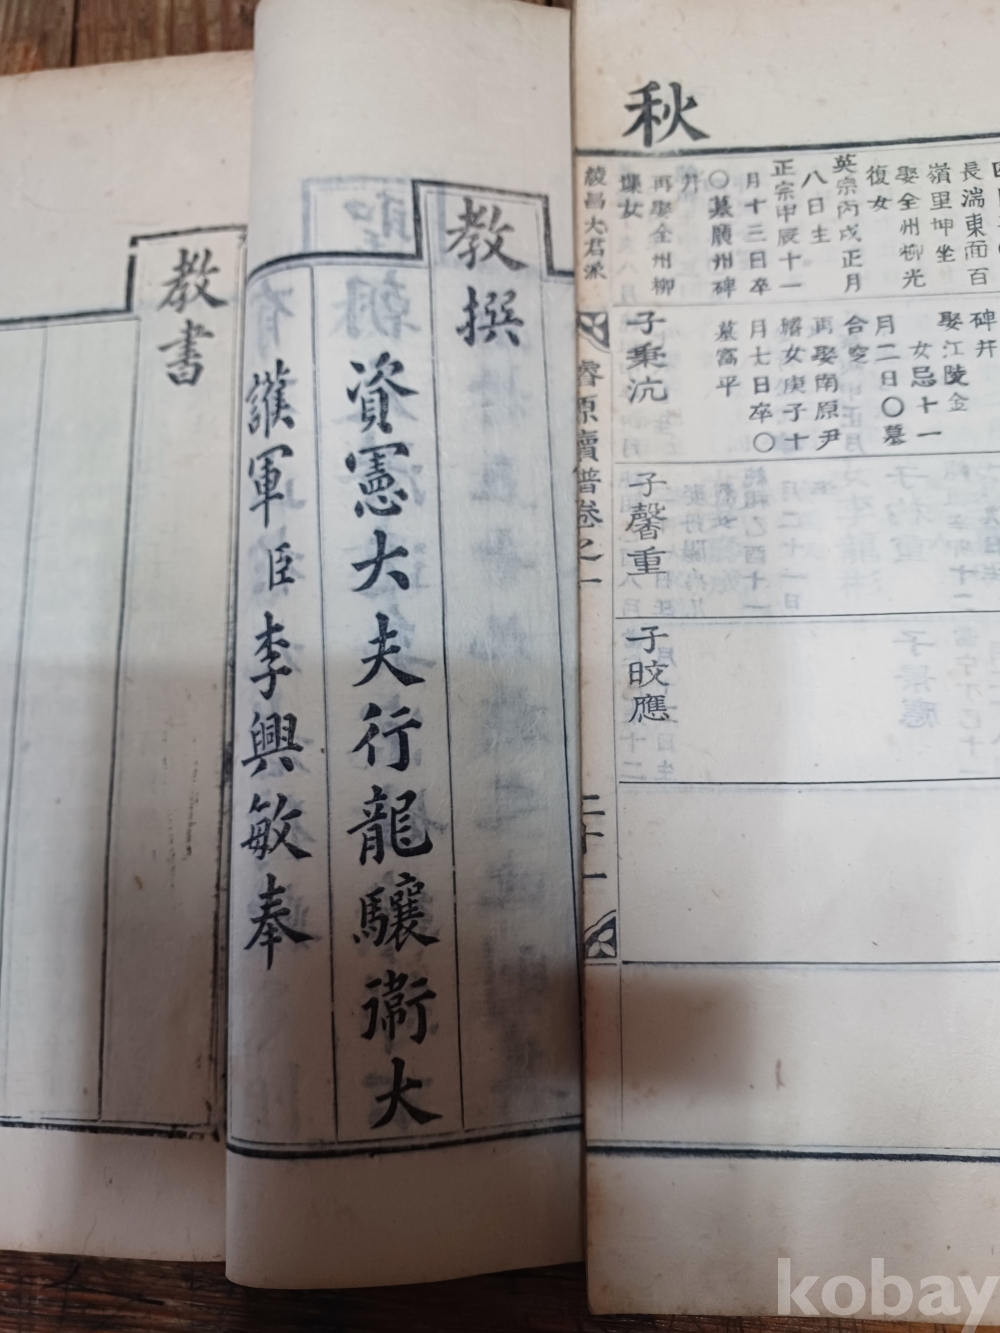 秋
四
長湍東面百
嶺里坤坐
娶全州柳光
復女
英宗丙戌正月
八日生
正宗甲辰十一
月十三日卒
〇墓廣州碑
井
再娶全州柳
女
綾昌大君派
碑井
娶江陵金
女忌十一
月二日〇墓
合窆
再娶南原尹
女庚子十
月七日卒〇
墓富平
子秉沆
子馨重
子晈應
璿源續譜卷之一
二十一
教
撰
資憲大夫行龍驤衛大
護軍臣李興敏奉
教
書
kobay